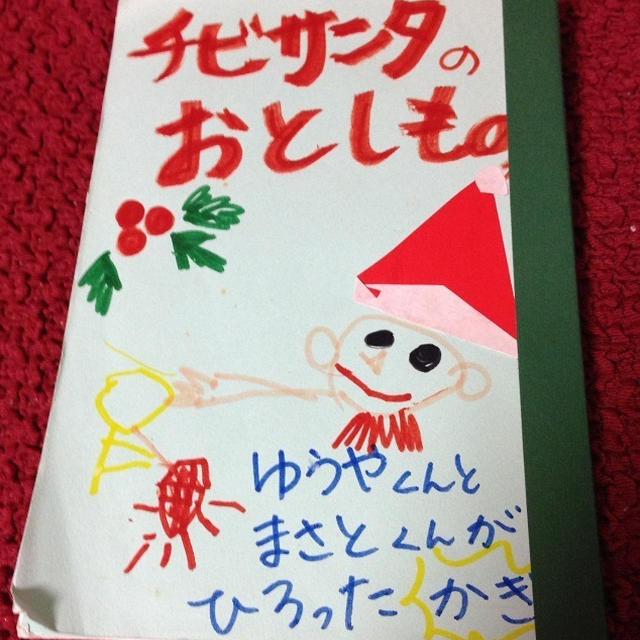 チビサンタの
おとしもの
ゆうやくんと
まさとくんが
ひろったかぎ